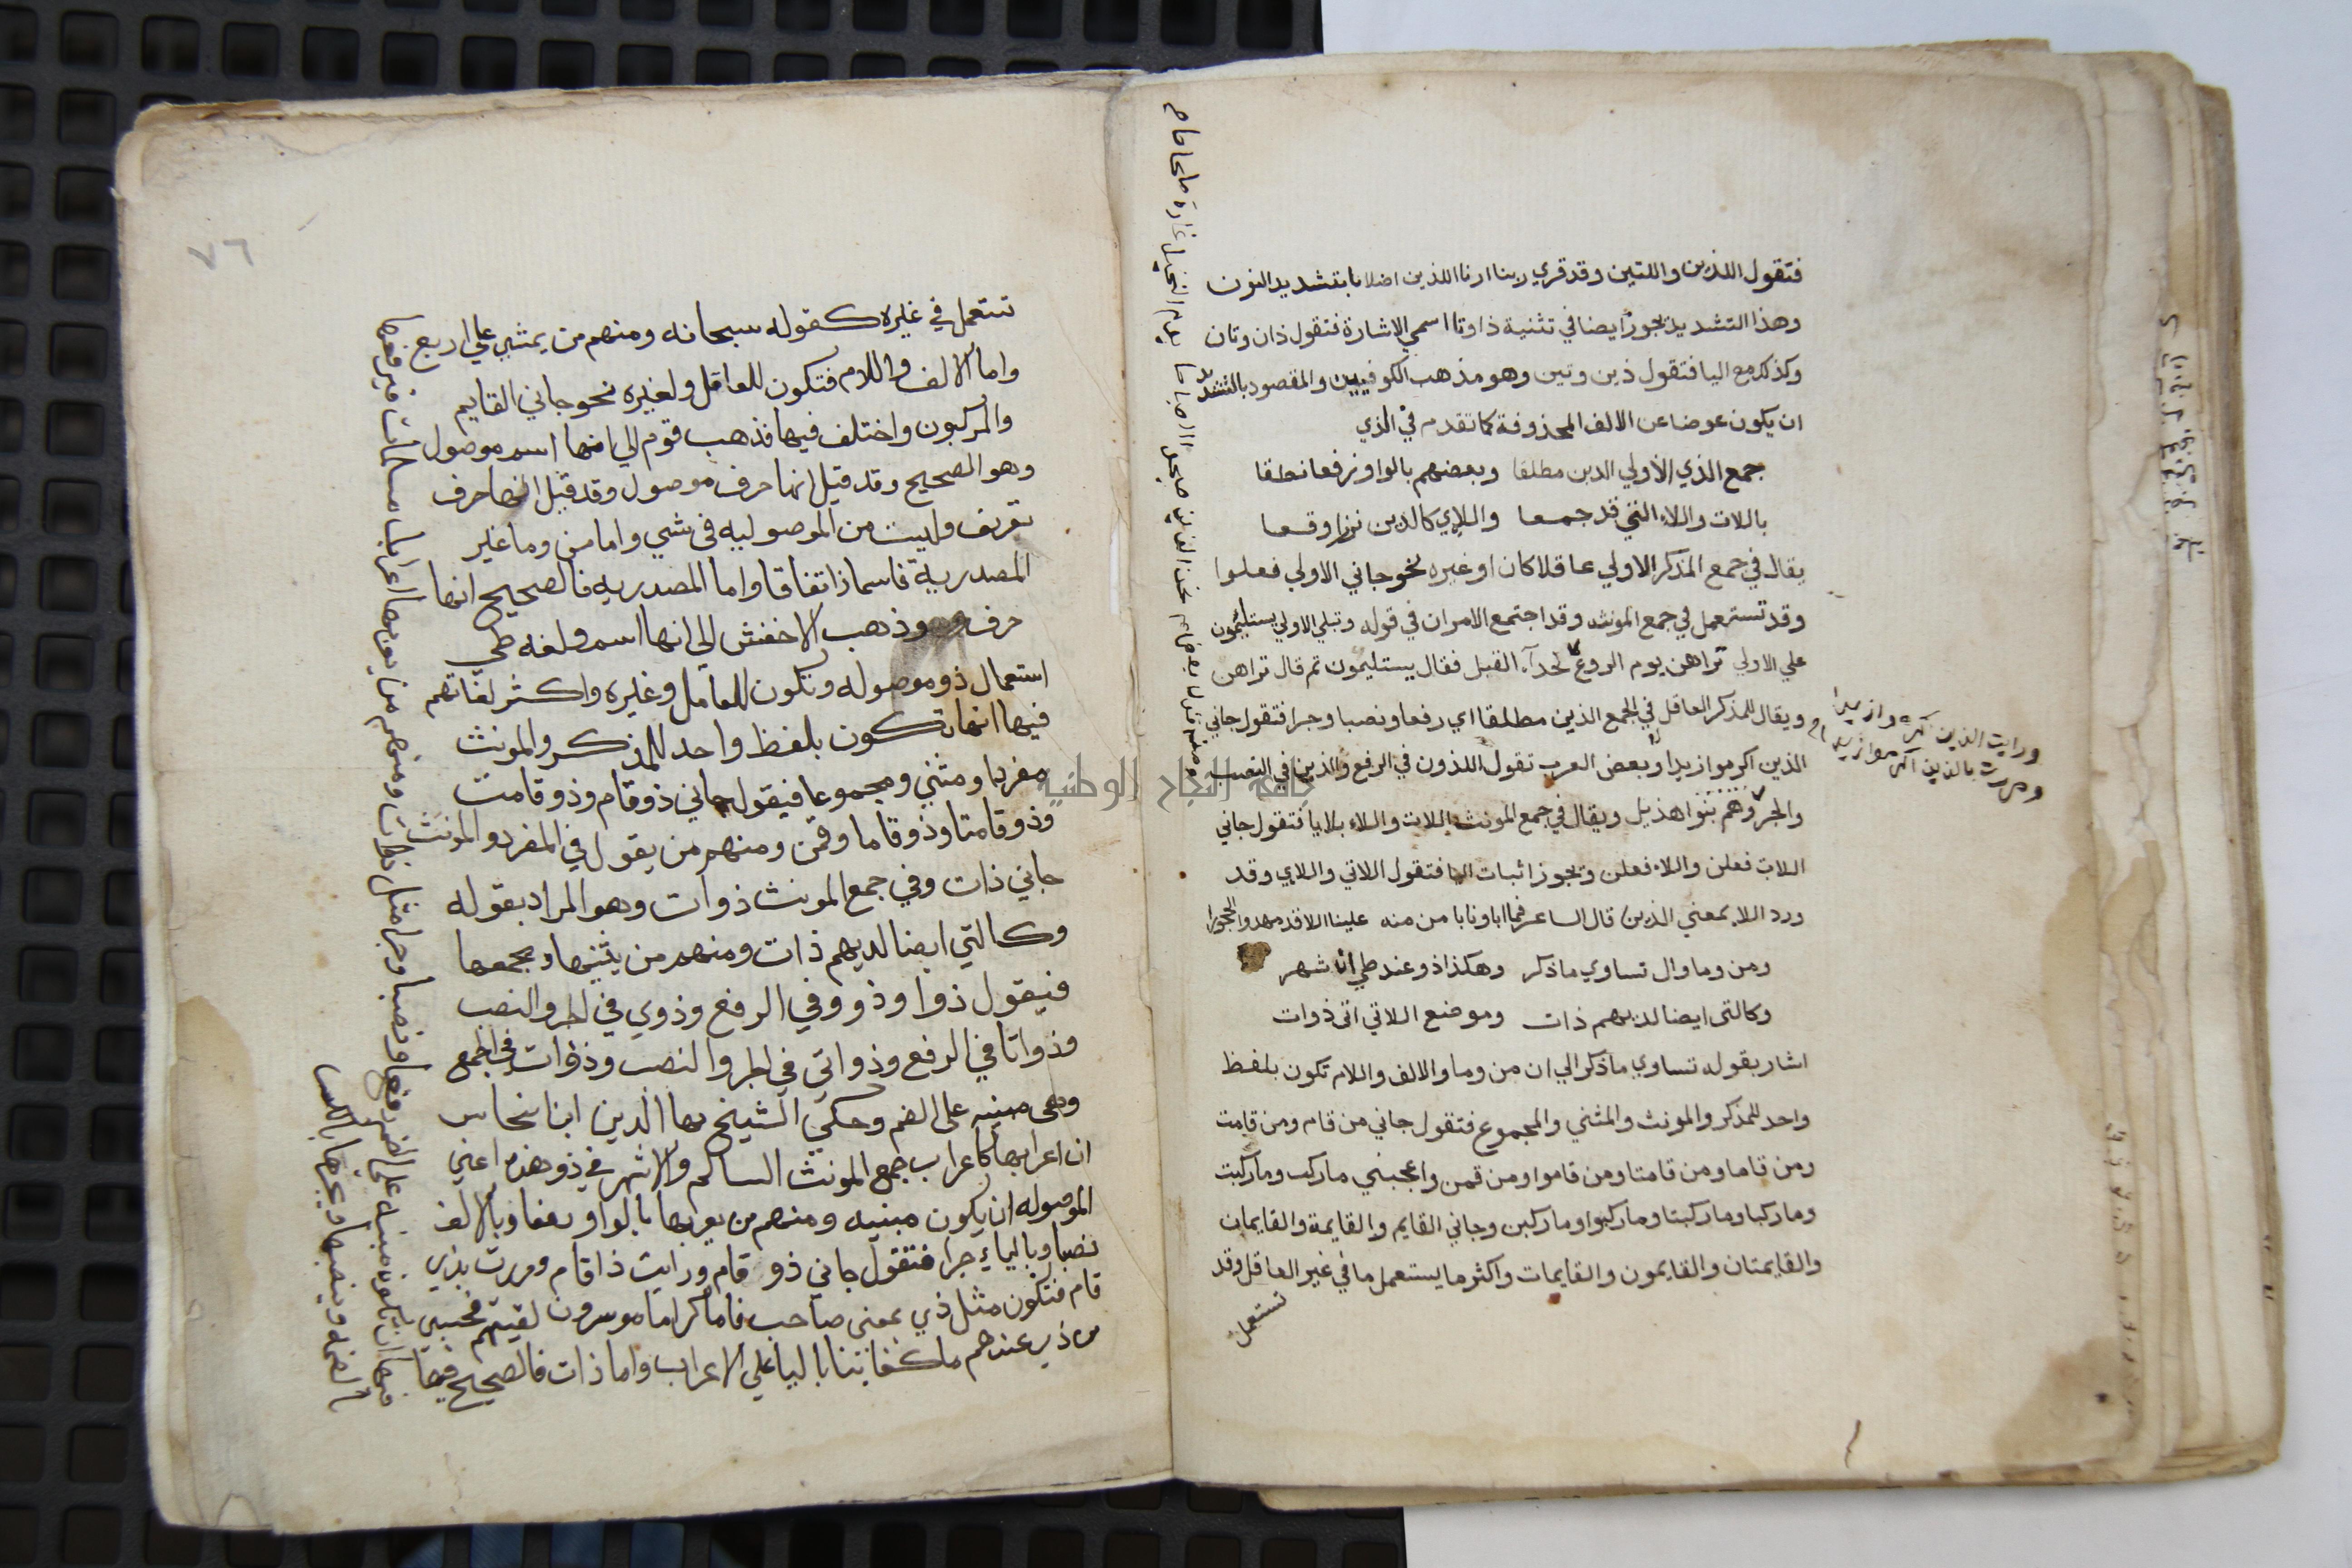 فتقول اللذين واللتين وقد قري ربنا ارنا اللذين اضلانا بتشديد النون
وهذا التشديد يجوز ايضا في تثنية ذا وتا اسمي الاشارة فتقول ذان وتان
وكذلك مع اليا فتقول ذين وتين وهو مذهب الكوفيين والمقصود بالتشديد
ان يكون عوضا عن الالف المحذوفة كما تقدم في الذي
جمع الذي الاولي الذين مطلقا وبعضهم بالواو رفعا نطقا
باللات واللاء التي قد جمعا واللاي كالذين نزرا وقعا
يقال في جمع المذكر الاولي عاقلا كان او غيره نحو جاني الاولي فعلوا
وقد تستعمل في جمع المونث وقد اجتمع الامران في قوله وتبلي الاولي يستلئمون
علي الاولي تراهن يوم الروع كالحدآء القبل فقال يستليمون ثم قال تراهن
ويقال للمذكر العاقل في الجمع الذين مطلقا اي رفعا ونصبا وجرا فتقول جاني
الذين اكرموا زيدا وبعض العرب تقول اللذون في الرفع والذين في النصب
والجر وهم بنوا هذيل ويقال في جمع المونث اللات واللاء بلا يا فتقول جاني
اللات فعلن واللاء فعلن ويجوز اثبات اليا فتقول اللاتي واللاي وقد
ورد اللاء بمعني الذين قال الساعر فما اباونا بامن منه علينا اللا قد مهدوا الحجورا
ومن وما وال تساوي ما ذكر وهكذا ذو عند طي شهر
وكالتي ايضا لديهم ذات وموضع اللاتي اتى ذوات
اشار بقوله تساوي ما ذكر الي ان من وما والالف واللام تكون بلفظ
واحد للمذكر والمونث والمثني والمجموع فتقول جاني من قام ومن قامت
ومن قاما ومن قامتا ومن قاموا ومن قمن واعجبني ما ركب وما ركبت
وما ركبا وما ركبتا وما ركبوا وما ركبن وجاني القايم والقايمة والقايمان
والقايمتان والقايمون والقايمات واكثر ما يستعمل ما في غير العاقل وقد
تستعمل
ورايت الذين اكرموا زيدا
ومررت بالذين اكرموا زيدا
جامعة النجاح الوطنية
٧٦
تستعمل في غيره كقوله سبحانه ومنهم من يمشي علي اربع
واما الالف واللام فتكون للعاقل ولغيره نحو جاني القايم
والمركبون واختلف فيها فذهب قوم الي انها اسم موصول
وهو الصحيح وقد قيل انها حرف موصول وقد قيل انها حرف
تعريف وليست من الموصوليه في شي واما من وما غير
المصدرية فاسما ذا تفاقا واما المصدريه فالصحيح انها
حرف وذهب الاخفش الي انها اسم ولغه طي
استعمال ذو موصوله وتكون للعاقل وغيره واكثر لغاتهم
فيها انها تكون بلفظ واحد للمذكر والمونث
مفردا ومثني ومجموعا فيقول جاني ذو قام وذو قامت
وذو قامتا وذو قاما وقمن ومنهم من يقول في المفرد المونث
جاني ذات وفي جمع المونث ذوات وهو المراد بقوله
وكالتي ايضا لديهم ذات ومنهم من يثنيها ويجمعها
فيقول ذوا وذوو في الرفع وذوي في الجر والنصب
وذواتا في الرفع وذواتي في الجر والنصب وذوات في الجمع
وهى مبنيه على الضم وحكي الشيخ بها الدين ابن النحاس
ان اعرابها كاعراب جمع المونث السالم والاشهر في ذو هذه اعني
الموصوله ان يكون مبنيه ومنهم من يعربها بالواو رفعا وبالالف
نصبا وبالياء جرا فتقول جاني ذو قام ورايت ذا قام ومررت بذي
قام فتكون مثل ذي بمعنى صاحب فاما كراما موسرون لقيتهم فحسبي
من ذي عندهم ما كفانيا باليا علي الاعراب واما ذات فالصحيح فيها
فيها ان تكون مبنيه على الضم رفعا ونصبا وجرا مثل ذوات ومنهم من يعربها اعراب مسلمات فيرفعها
بالضمه وينصبها ويجرها بالكسر